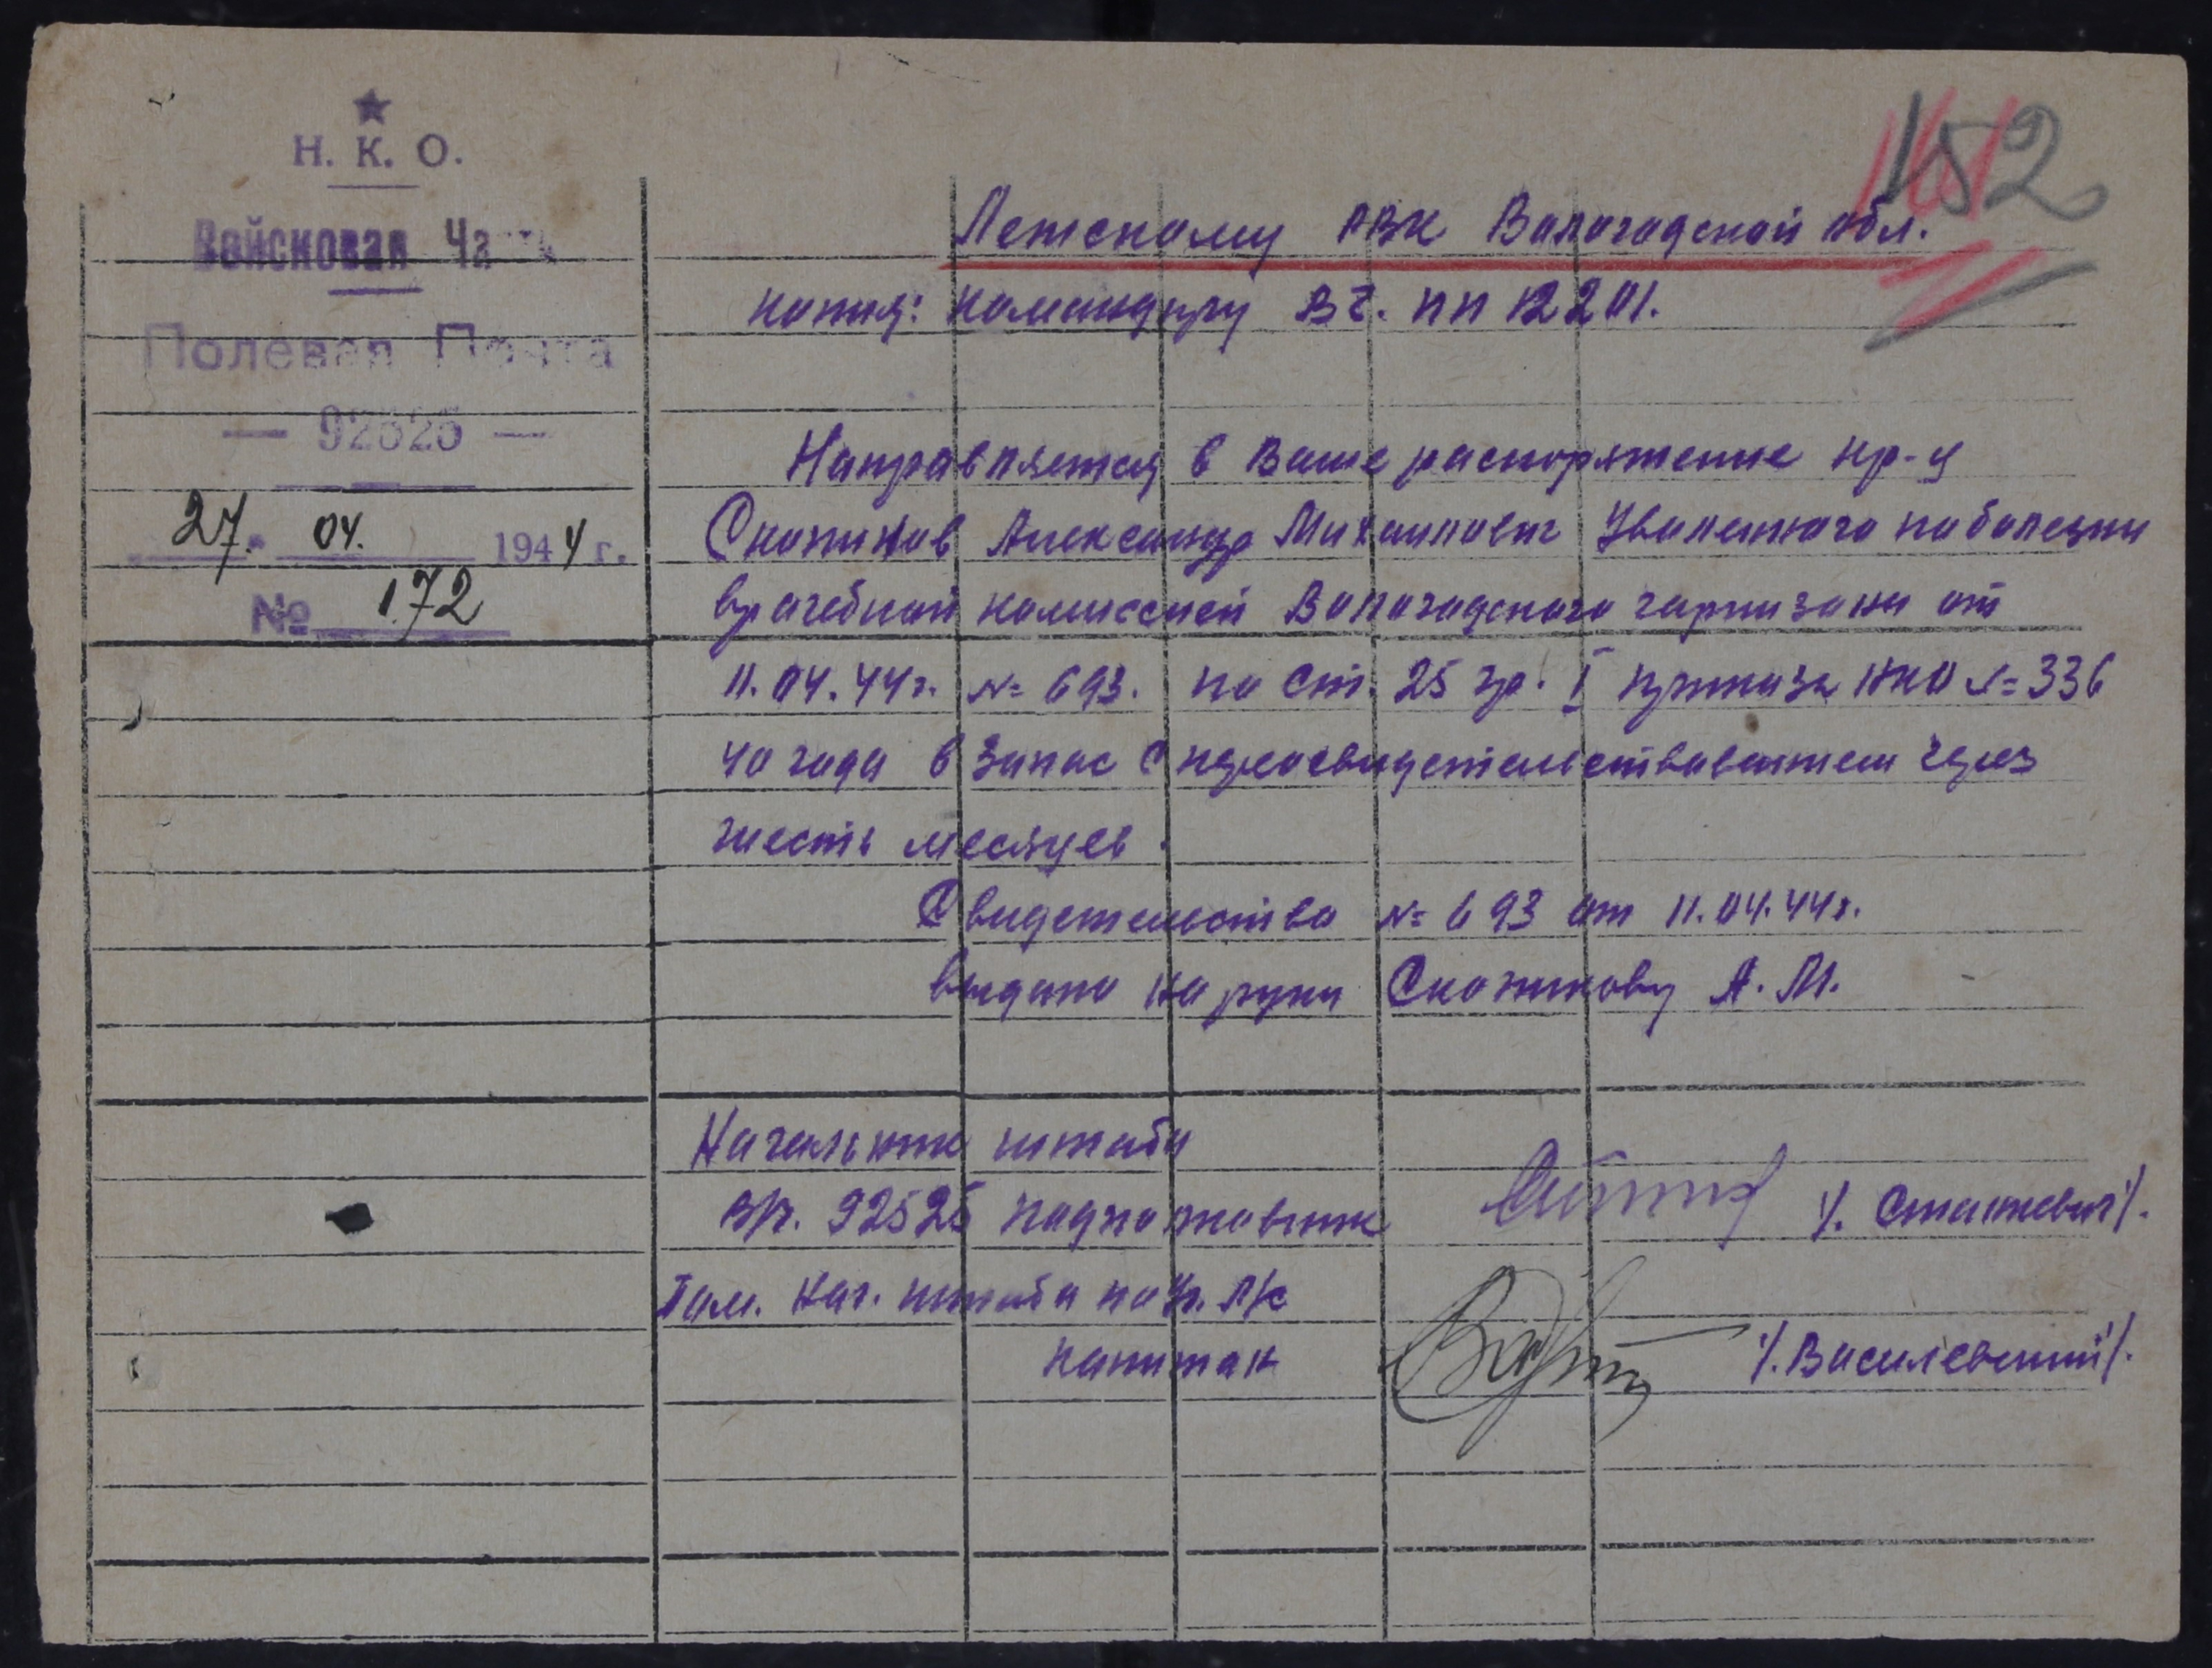 Н. К. О.
Войсковая Часть
Полевая Почта
— 92525 —
27. 04. 1944 г.
№ 172
152
Летскому РВК Вологодской обл.
копия: командиру ВЧ. ПП 12201.
Направляется в Ваше распоряжение кр-ц
Александр Михаилович Уволенного по болезни
врачебной комиссией Вологодского гарнизона от
11.04.44г. № 693. по Ст. 25 гр. I приказа НКО № 336
40 года в запас с переосвидетельствованием через
шесть месяцев.
Свидетельство № 693 от 11.04.44г.
выдано на руки А. М.
Начальник штаба
92525 подполковник /. Сташкевич/.
Пом. Нач. штаба по Уч. Л/с
капитан /. Василевский/.